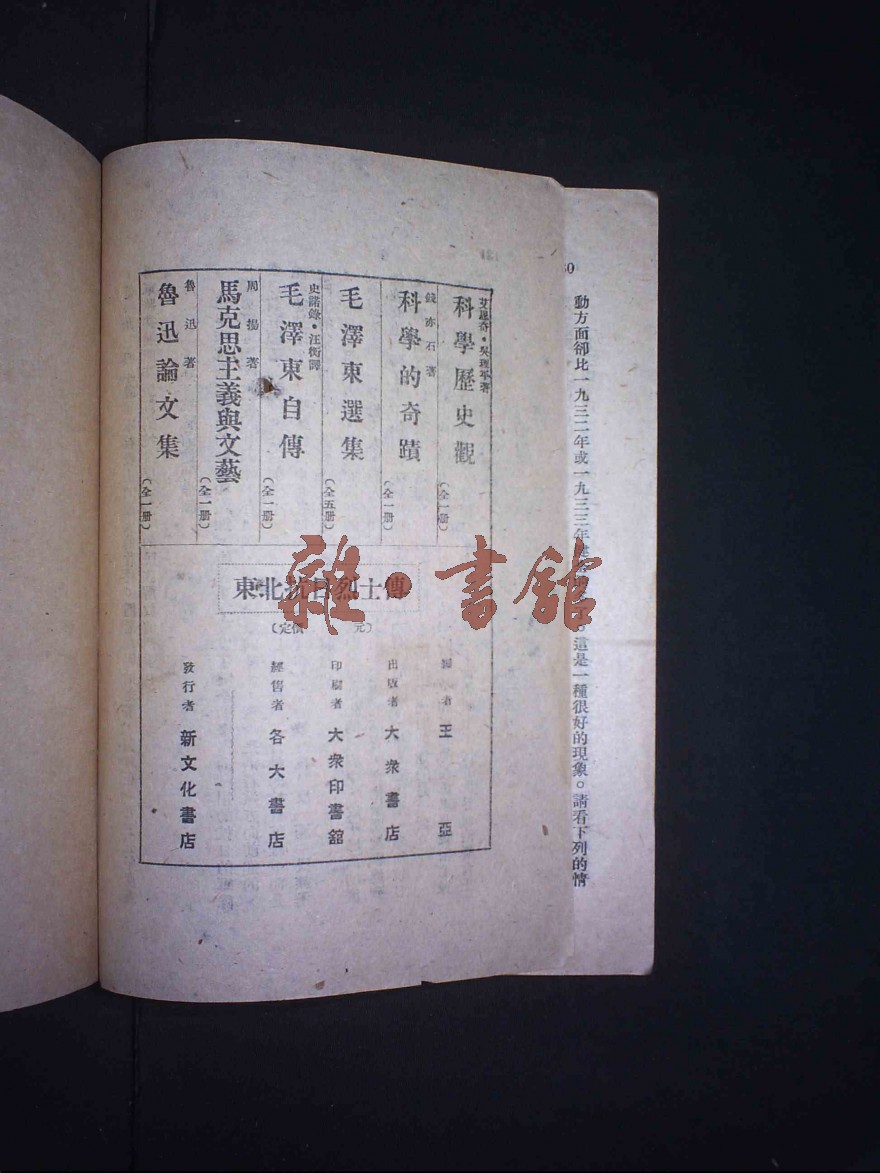 動方面卻比一九三二年或一九三三年
。這是一種很好的現象。請看下列的情
艾思奇·吳理平著
科學歷史觀
(全一册)
錢亦石著
科學的奇蹟
(全一册)
毛澤東選集
(全五册)
史諾錄·汪衡譯
毛澤東自傳
(全一册)
周揚著
馬克思主義與文藝
(全一册)
魯迅著
魯迅論文集
(全一册)
東北抗日烈士傳
(定價 元)
編者 王亞
出版者 大衆書店
印刷者 大衆印書舘
經售者 各大書店
發行者 新文化書店
雜·書舘